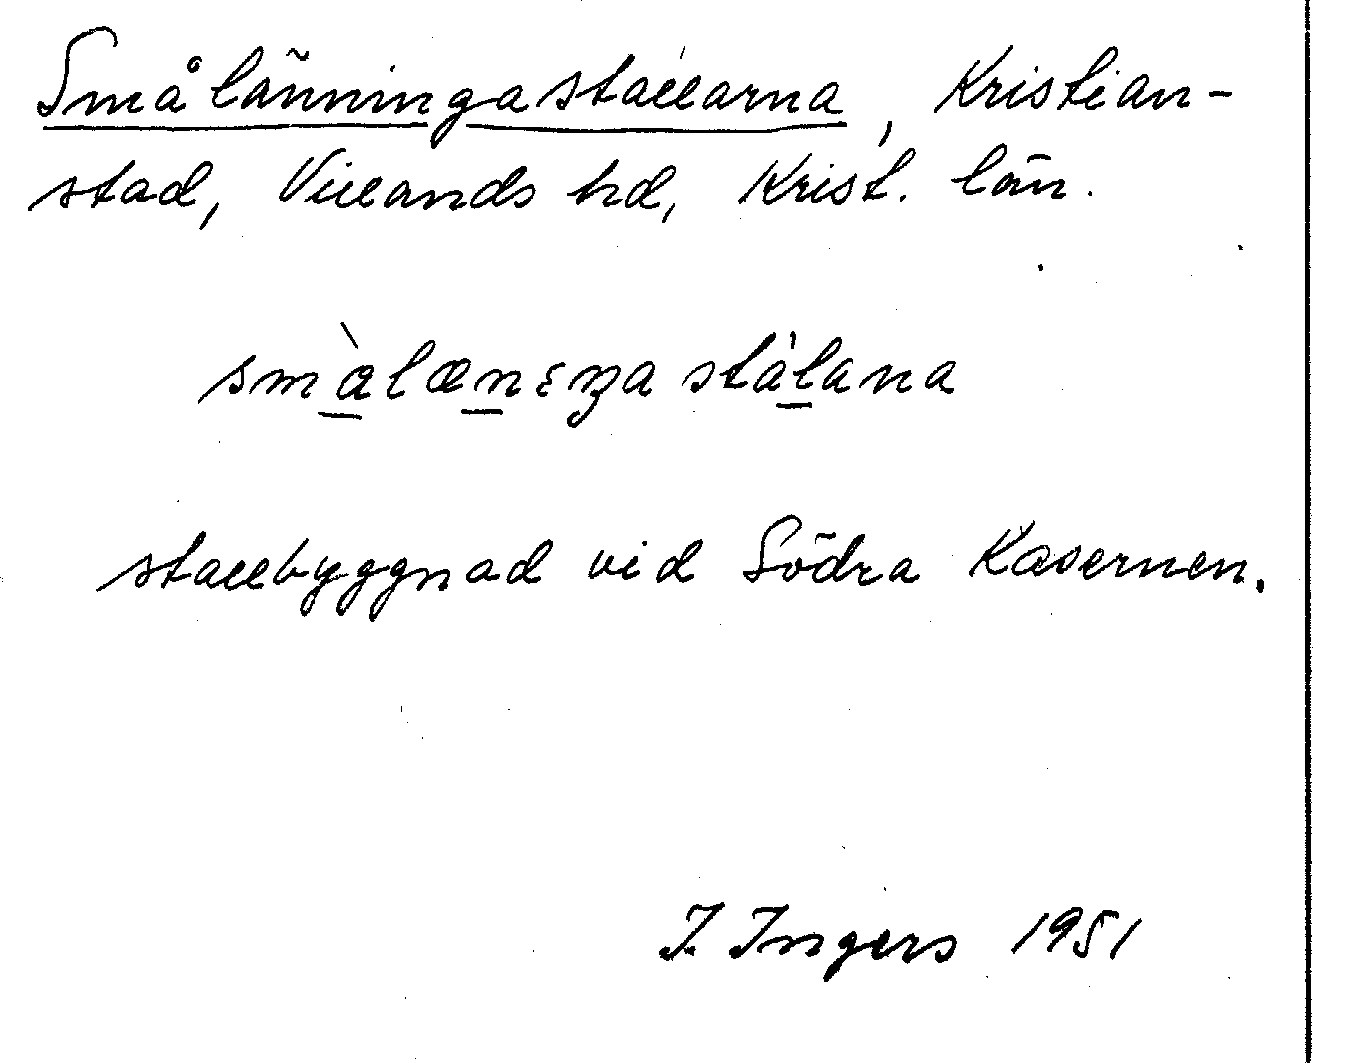 Smålänningastallarna, Kristian-
stad, Villands hd, Krist. län.
smàlænɛŋa stálana
stallbyggnad vid Södra Kasernen.
I. Ingers 1951